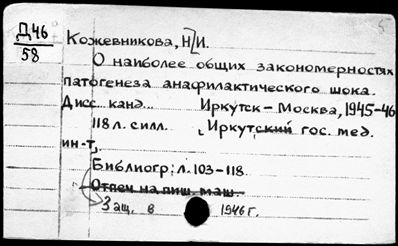 Д46
58
Кожевникова, Н.И.
О наиболее общих закономерностях
патогенеза анафилактического шока.
Дисс. канд. Иркутск-Москва, 1945-46
118 л. с илл. Иркутский гос. мед.
ин-т,
Библиогр: л. 103-118.
Отпеч на пиш. маш.
Защ. в 1946г.